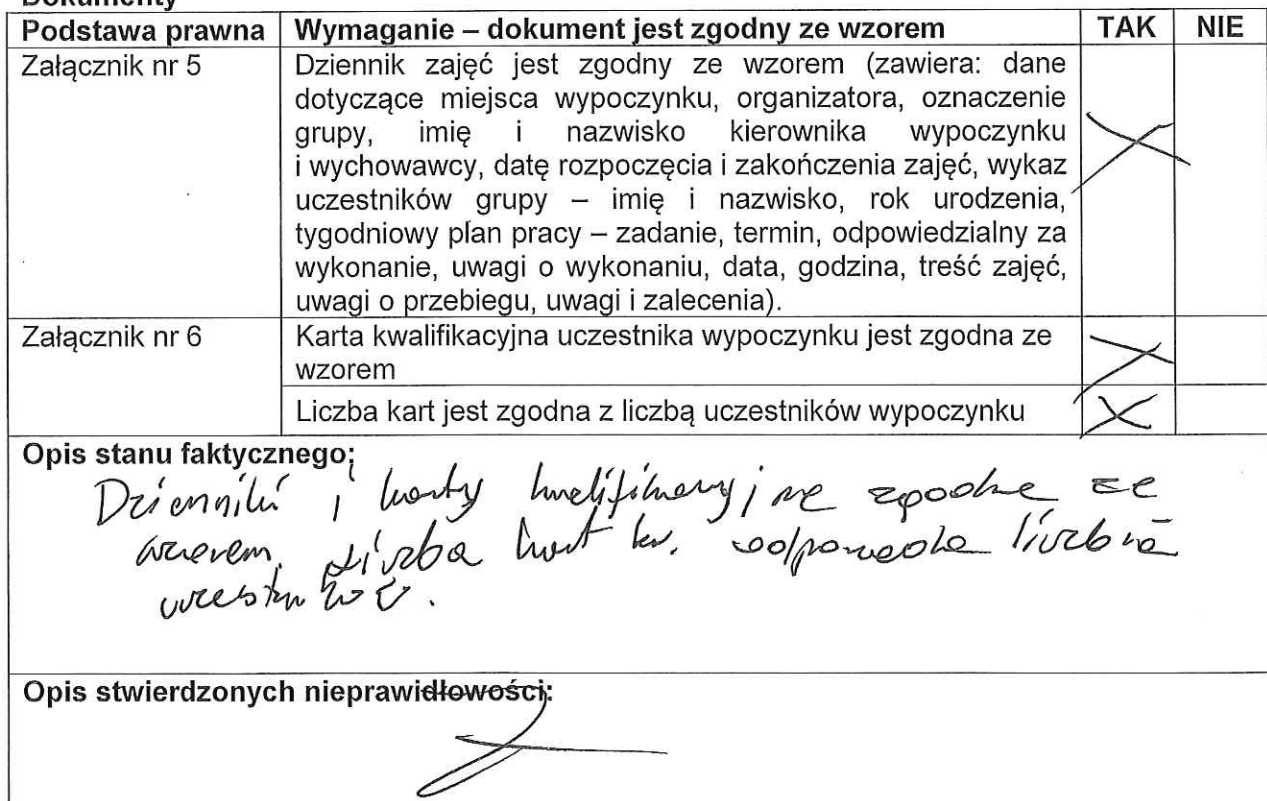 Dokumenty
Podstawa prawna Wymaganie – dokument jest zgodny ze wzorem TAK NIE
Załącznik nr 5 Dziennik zajęć jest zgodny ze wzorem (zawiera: dane
dotyczące miejsca wypoczynku, organizatora, oznaczenie
grupy, imię i nazwisko kierownika wypoczynku
i wychowawcy, datę rozpoczęcia i zakończenia zajęć, wykaz
uczestników grupy – imię i nazwisko, rok urodzenia,
tygodniowy plan pracy – zadanie, termin, odpowiedzialny za
wykonanie, uwagi o wykonaniu, data, godzina, treść zajęć,
uwagi o przebiegu, uwagi i zalecenia).
Załącznik nr 6 Karta kwalifikacyjna uczestnika wypoczynku jest zgodna ze
wzorem
Liczba kart jest zgodna z liczbą uczestników wypoczynku
Opis stanu faktycznego:
Dzienniki i karty kwalifikacyjne zgodne ze
wzorem. Liczba kart kw. odpowiada liczbie
uczestników.
Opis stwierdzonych nieprawidłowości: